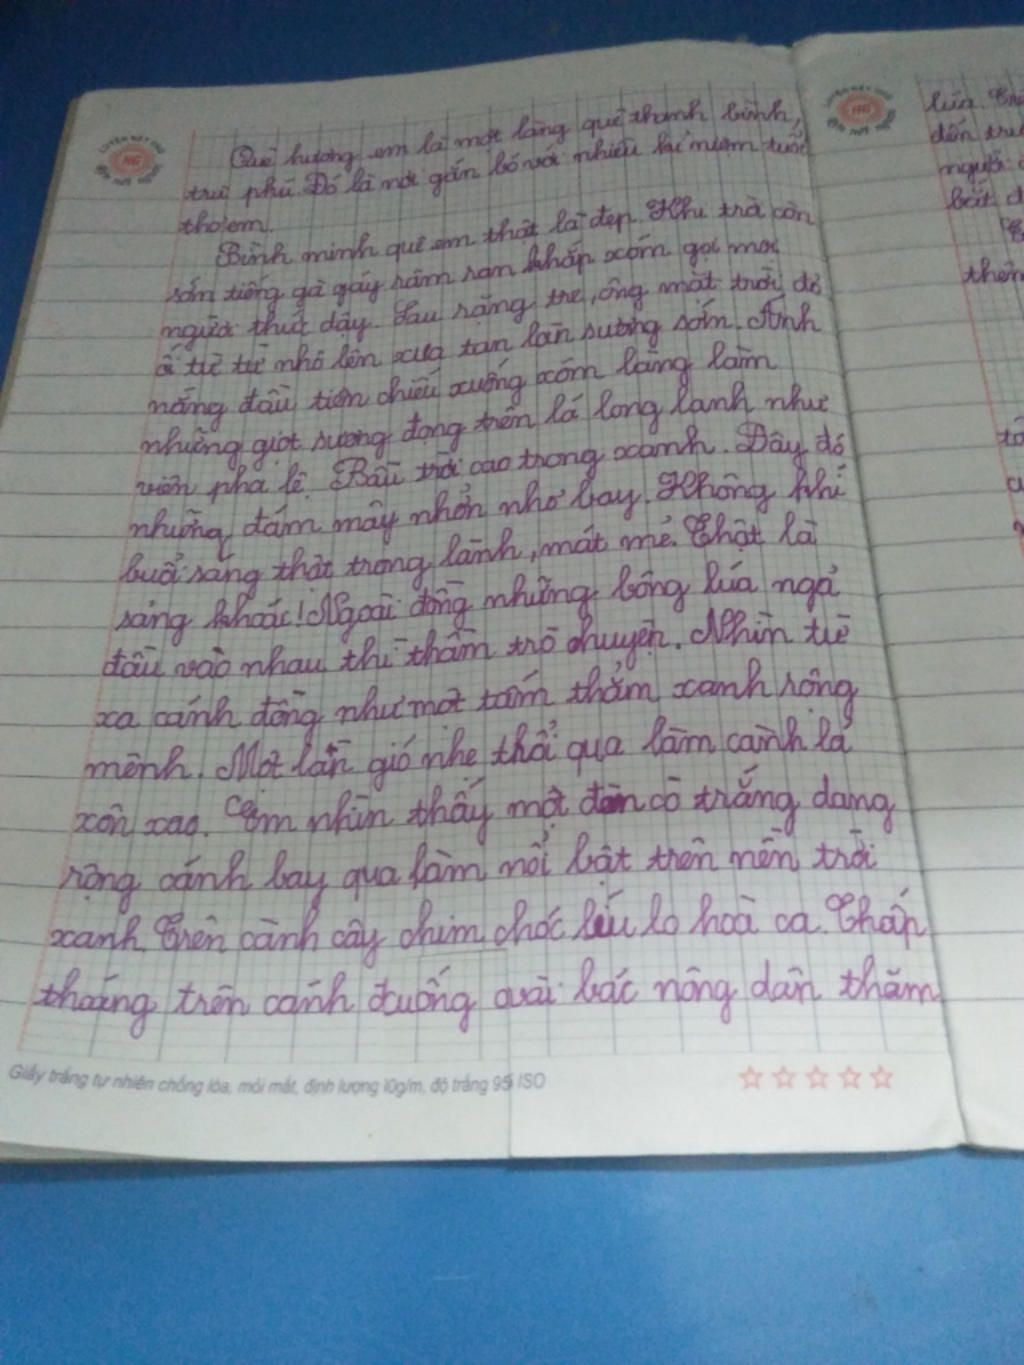 Quê hương em là một làng quê thanh bình,
trù phú. Đó là nơi gắn bó với nhiều kỉ niệm tuổi
thơ em.
Bình minh quê em thật là đẹp. Khi trời còn
sớm tiếng gà gáy râm ran khắp xóm gọi mọi
người thức dậy. Sau rặng tre, ông mặt trời đỏ
ối từ từ nhô lên xua tan làn sương sớm. Ánh
nắng đầu tiên chiếu xuống xóm làng làm
những giọt sương đọng trên lá long lanh như
viên pha lê. Bầu trời cao trong xanh. Đây đó
những đám mây nhởn nhơ bay. Không khí
buổi sáng thật trong lành, mát mẻ. Thật là
sảng khoái! Ngoài đồng những bông lúa ngả
đầu vào nhau thì thầm trò chuyện. Nhìn từ
xa cánh đồng như một tấm thảm xanh rộng
mênh. Một làn gió nhẹ thổi qua làm cành lá
xôn xao. Em nhìn thấy một đàn cò trắng dang
rộng cánh bay qua làm nổi bật trên nền trời
xanh. Trên cành cây chim chóc líu lo hoà ca. Thấp
thoáng trên cánh đường vài bác nông dân thăm
Giấy trắng tự nhiên chống lóa, mỏi mắt, định lượng
độ trắng 95 ISO
lúa
người
bắt
thên